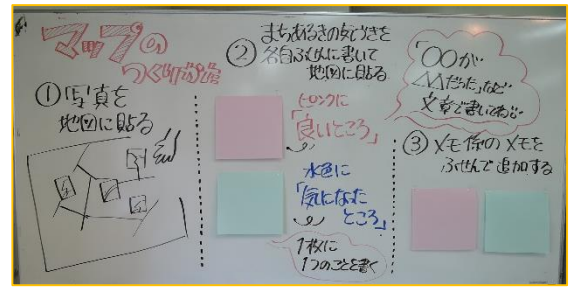 マップの
つくりかた
①写真を
地図に貼る
②まちあるきの気づきを
各自ふせんに書いて
地図に貼る
ピンクに
「良いところ」
水色に
「気になった
ところ」
1枚に
1つのことを書く
「〇〇が
△△だった」など
文章で書いてね
③メモ係のメモを
ふせんで追加する